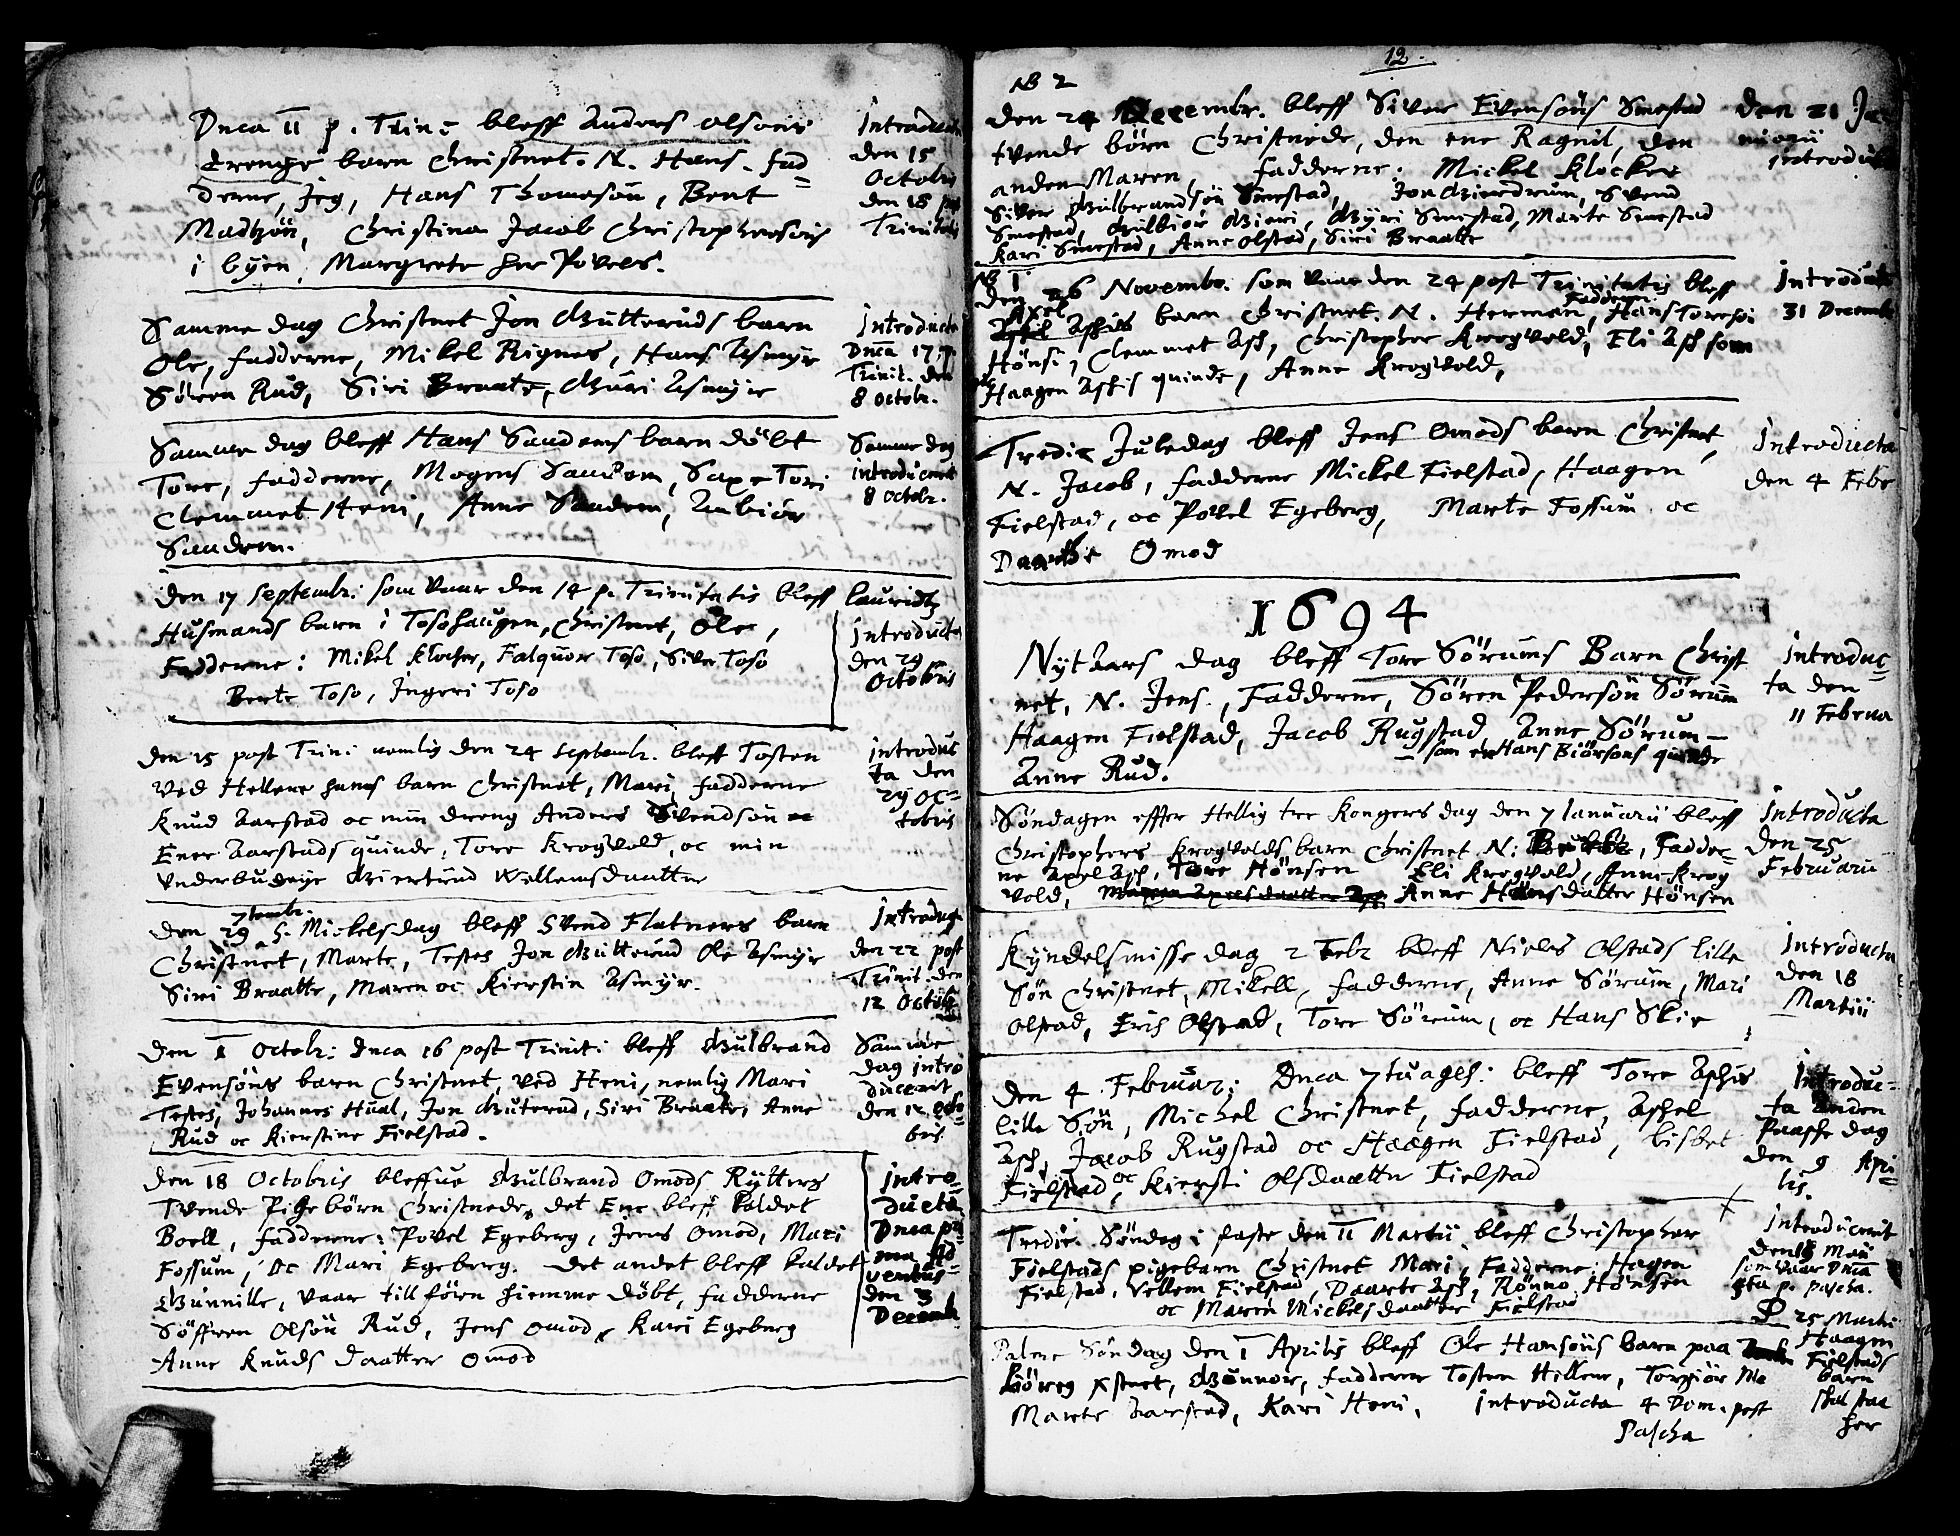 Dnca 11 p. Trini bleff Anders Olsøns
drengs barn Christnet. N. Hans. fad=
derne, Jeg, Hans Thomesøn, Bent
Madtzøn, Christina Jacob Christophersøns
i byen, Margrete her Povels.
Introducta
den 15
Octobris
den 18 post
Trinitatis
Samme dag Christnet Jon Gutteruds barn
Ole, fadderne, Mikel Rignes, Hans Asmyr
Søren Rud, Siri Braate, Guri Asmyr
Introducta
Dnca 17 p.
Trinit. den
8 Octobr.
Samme dag bleff Hans Sandems barn døbt
Tore, fadderne, Mogens Sandem, Saxe Tori
Clemmet Heni, Anne Sandem, Anbiør
Sandem.
Samme dag
introducerit
8 Octobr.
Den 17 Septembr: som vaar den 14 p. Trinitatis bleff lauridtz
Husmands barn i Tosohaugen, Christnet, Ole,
Fadderne: Mikel Klocker, Falquor Toso, Siver Toso
Berte Toso, Ingeri Toso
Introducta
den 29
Octobris
Den 15 post Trini nemlig den 24 Septembr. bleff Tosten
ved Hellene hans barn Christnet, Mari, fadderne
Knud Aarstad oc min dreng Anders Svendsøn oc
Ener Aarstads quinde, Tore Krogvold, oc min
Underbudeye Giertrud Wellemsdaatter
introduc
ta den
29 Oc=
tobris
den 29 7tembr. S. Mickelsdag bleff Svend Flatners barn
Christnet, Marte, Testes Jon Gutterud Ole Asmyr
Siri Braatte, Maren oc Kierstin Asmyr.
Introduct
den 22 post
Trinit. den
12 Octob
Den 1 Octobr: Dnca 16 post Triniti bleff Gulbrand
Evensøns barn Christnet, ved Heni, nemlig Mari
Testes, Johannes Hual, Jon Guterud, Siri Braate, Anne
Rud oc Kierstine Fielstad.
Samme
dag intro
ducerit
den 12 octo=
bris
Den 18 Octobris bleffue Gulbrand Omods Rytters
Tvende Pigebørn Christnede, det Ene bleff kaldet
Boell, fadderne: Povel Egeberg, Jens Omod, Mari
Fossum, oc Mari Egeberg. Det andet bleff kaldet
Gunnille, vaar tillførn hiemme døbt, fadderne
Søffren Olsøn Rud, Jens Omod, Kari Egeberg
Anne Knuds daatter Omod
Intro=
ducta
Dnca pri
ma Ad
ventus=
den 3
Decemb
12.
NB 2
Den 24 Decembr. bleff Siver Evensøns Smestad
tvende børn Christnede, den ene Ragnil, den
anden Maren, fadderne: Mickel Klocker
Siver Gulbrandsøn Smestad, Jon Gierdrum, Svend
Smestad, Gulbiør Gieri, Gyri Smestad, Marte Smestad
Kari Smestad, Anne Olstad, Siri Braatte
Den 21 Ja
nuarii
introduct
NB 1
Den 26 Novembr. som vaar den 24 post Trinitatis bleff
Axel Aschis barn Christnet. N. Herman, Fadderne Hans Toresøn
Hønsi, Clemmet Asch, Christopher Krogvold, Eli Asch som
Haagen Aschis quinde, Anne Krogvold,
Introducta
31 Decembr
Tredie Juledag bleff Jens Omods barn Christnet,
N. Jacob, fadderne Mickel Fielstad, Haagen
Fielstad, oc Povel Egeberg, Marte Fossum oc
Daarthe Omod
Introducta
den 4 Febr
1694
Nytaars dag bleff Tore Sørums Barn Christ
net, N. Jens., Fadderne, Søren Pedersøn Sørum
Haagen Fielstad, Jacob Rugstad Anne Sørum —
som er Hans Biørsøns quinde
Anne Rud.
Introduc=
ta den
11 Februa
Søndagen effter Hellig tre Kongers dag den 7 Ianuarii bleff
Christophers Krogvolds barn Christnet N: , Fadder=
ne Axel Asch, Tore Hønsen Eli Krogvold, Anne Krog
vold, Anne Hansdatter Hønsen
Introducta
den 25
Februarii
Kyndelsmisse dag 2 Febr bleff Niels Olstads lille
Søn Christnet, Mikell, fadderne, Anne Sørum, Mari
Olstad, Erich Olstad, Tore Sørum, oc Hans Skie
Introducta
den 18
Martii
Den 4 Februar: Dnca 7tuages: bleff Tore Aschis
lille Søn, Michel Christnet, fadderne, Aschel
Asch, Jacob Rugstad oc Haagen Fielstad, lisbet
Fielstad, oc Kiersti Olsdaatter Fielstad
Introduc=
ta anden
Paasche dag
den 9 Apri=
lis.
Tredie Søndag i faste den 11 Martii bleff Christopher
Fielstads pigebarn Christnet Mari, Fadderne: Hagen
Fielstad, Vellem Fielstad, Daarte Asch, Rønno Hønsen
oc Maren Mickelsdaatter Fielstad
Introducerit
den 13 Maii
som vaar Dnca
4ta p. pascha.
25 Marti
Haagen
Fielstads
barn
skal staa
her
Palme Søndag den 1 Aprilis bleff Ole Hansøns barn paa
Børeg Xstnet, Gunnor, fadderne Tosten Hellene, Torgiør Mo
Marte Aarstad, Kari Heni, introducta 4 Dom. post
Pascha